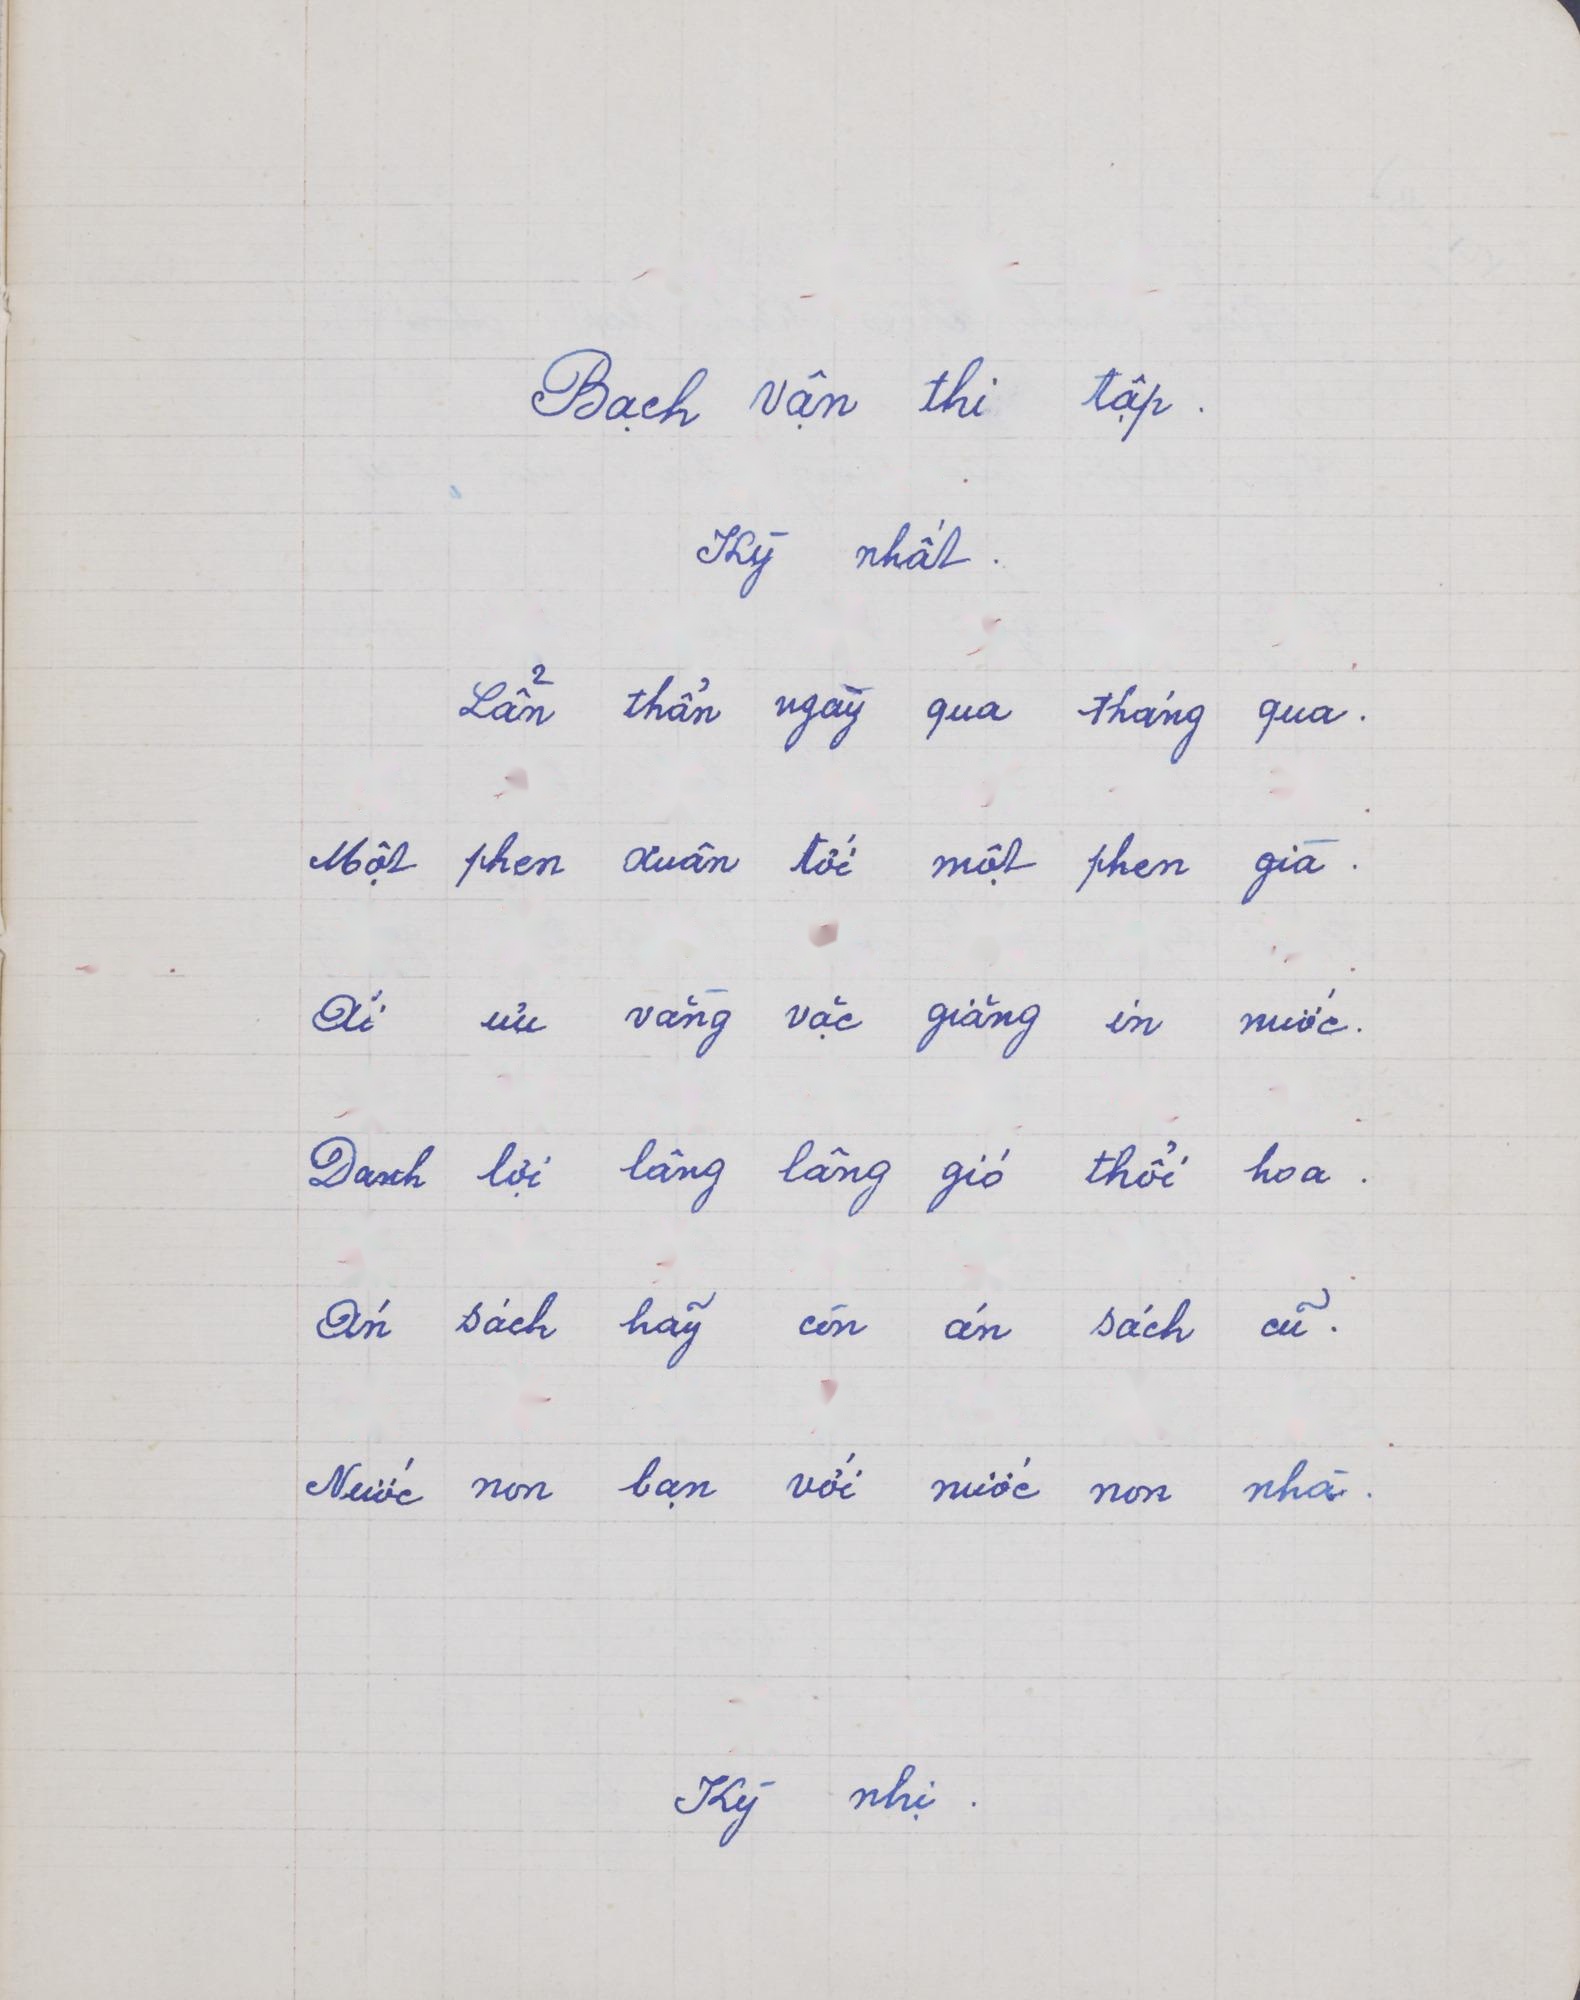 Bạch vận thi tập.
Kỳ nhất.
Lẩn thẩn ngày qua tháng qua.
Một phen xuân tới một phen già.
Ái ưu vằng vặc giăng in nước.
Danh lợi lâng lâng gió thổi hoa.
Án sách hãy còn án sách cũ.
Nước non bạn với nước non nhà.
Kỳ nhị.